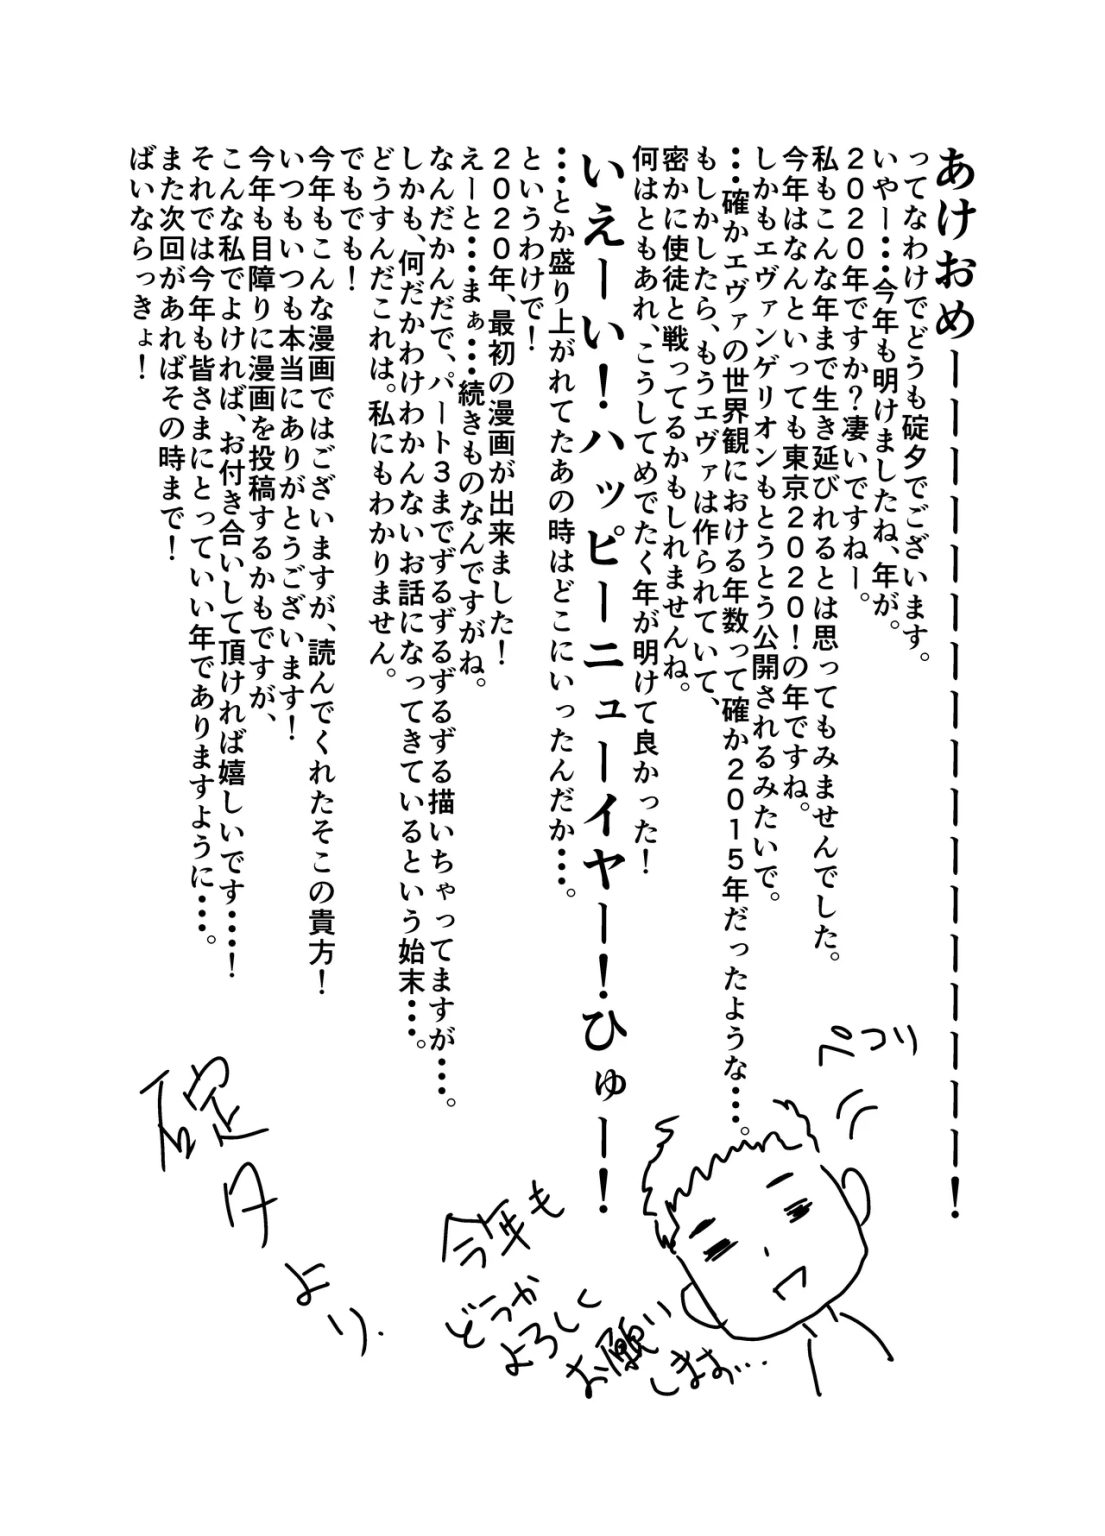 あけおめーーーーーーーーーーーーーーーーー！
ってなわけでどうも碇夕でございます。
いやー・・・今年も明けましたね、年が。
２０２０年ですか？凄いですねー。
私もこんな年まで生き延びれるとは思ってもみませんでした。
今年はなんといっても東京２０２０！の年ですね。
しかもエヴァンゲリオンもとうとう公開されるみたいで。
・・・確かエヴァの世界観における年数って確か２０１５年だったような・・・。
もしかしたら、もうエヴァは作られていて、
密かに使徒と戦ってるかもしれませんね。
何はともあれ、こうしてめでたく年が明けて良かった！
いえーい！ハッピーニューイヤー！ひゅーー！
・・・とか盛り上がれてたあの時はどこにいったんだか・・・。
というわけで！
２０２０年、最初の漫画が出来ました！
えーと・・・まぁ・・・続きものなんですがね。
なんだかんだで、パート３までずるずるずるずる描いちゃってますが・・・。
しかも、何だかわけわかんないお話になってきているという始末・・・。
どうすんだこれは。私にもわかりません。
でもでも！
今年もこんな漫画ではございますが、読んでくれたそこの貴方！
いつもいつも本当にありがとうございます！
今年も目障りに漫画を投稿するかもですが、
こんな私でよければ、お付き合いして頂ければ嬉しいです・・・！
それでは今年も皆さまにとっていい年でありますように・・・。
また次回があればその時まで！
ばいならっきょ！
ぺこり
今年も
どうか
よろしく
お願い
します…
碇夕より．